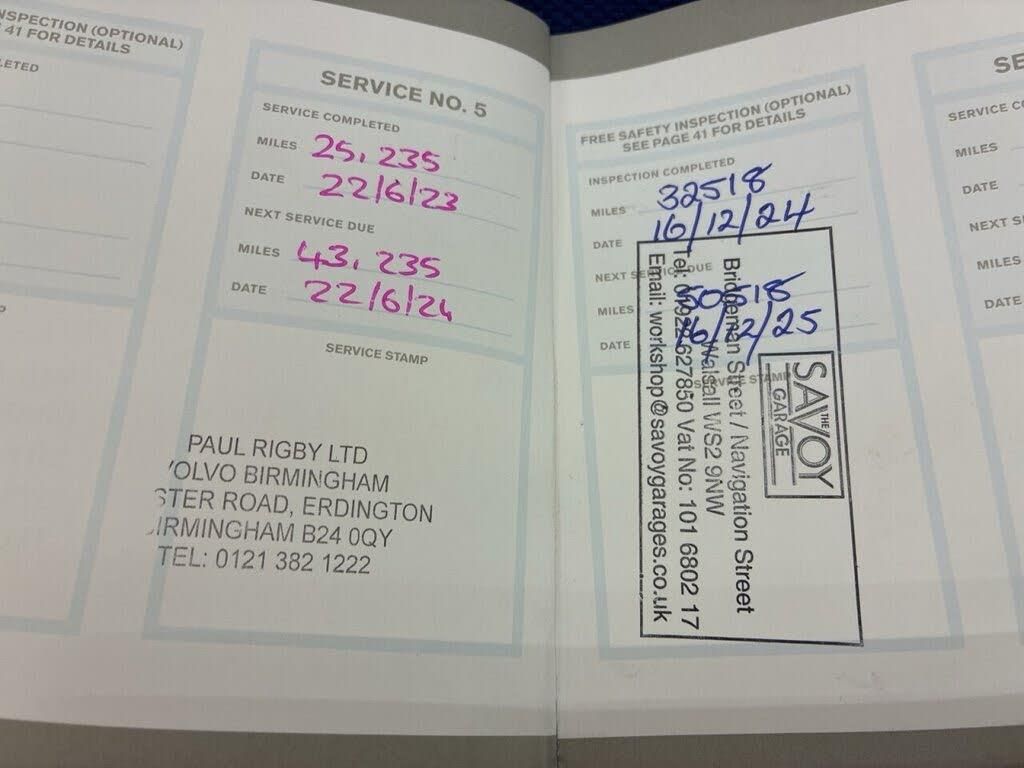 NSPECTION (OPTIONAL)
41 FOR DETAILS
LETED
SERVICE NO. 5
SERVICE COMPLETED
MILES 25,235
DATE 22/6/23
NEXT SERVICE DUE
MILES 43,235
DATE 22/6/24
SERVICE STAMP
PAUL RIGBY LTD
VOLVO BIRMINGHAM
STER ROAD, ERDINGTON
IRMINGHAM B24 0QY
TEL: 0121 382 1222
FREE SAFETY INSPECTION (OPTIONAL)
SEE PAGE 41 FOR DETAILS
INSPECTION COMPLETED
MILES 32518
DATE 16/12/24
NEXT SERVICE DUE
MILES 50518
DATE 16/12/25
SERVICE STAMP
THE
SAVOY
GARAGE
Bridgeman Street / Navigation Street
Walsall WS2 9NW
Tel: 01922 627850 Vat No: 101 6802 17
Email: workshop@savoygarages.co.uk
SE
SERVICE CO
MILES
DATE
NEXT S
MILES
DATE